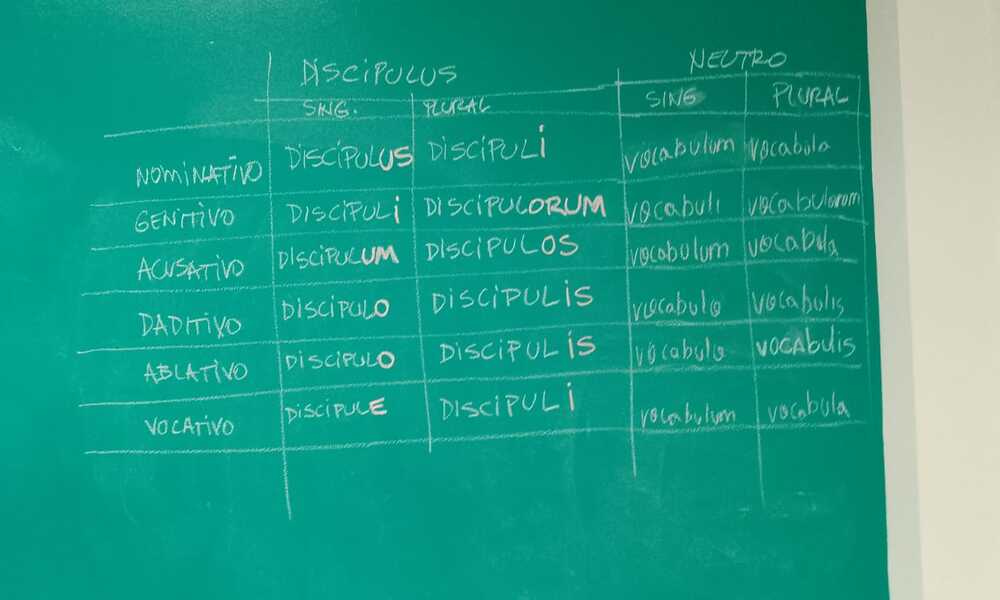 DISCIPULUS NEUTRO
SING. PLURAL SING PLURAL
NOMINATIVO DISCIPULUS DISCIPULI vocabulum vocabula
GENITIVO DISCIPULI DISCIPULORUM vocabuli vocabulorum
ACUSATIVO DISCIPULUM DISCIPULOS vocabulum vocabula
DADITIVO DISCIPULO DISCIPULIS vocabulo vocabulis
ABLATIVO DISCIPULO DISCIPULIS vocabulo VOCAbulis
VOCATIVO DISCIPULE DISCIPULI vocabulum vocabula